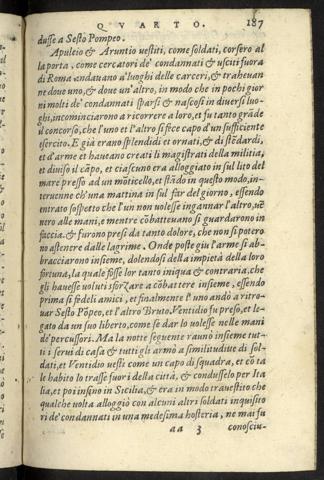 QVARTO. 187
dusse a Sesto Pompeo.
Apuleio & Aruntio uestiti, come soldati, corsero al
la porta, come cercatori de' condannati & usciti fuora
di Roma andauano a' luoghi delle carceri, & traheuan
ne doue uno, & doue un'altro, in modo che in pochi gior
ni molti de' condannati sparsi & nascosi in diuersi luo-
ghi, incominciarono a ricorrere a loro, et fu tanto grãde
il concorso, che l'uno et l'altro si fece capo d'un sufficiente
esercito. E già erano splendidi et ornati, & di stẽdardi,
et d'arme et haueano creati li magistrati della militia,
et diuiso il cãpo, et ciascuno era alloggiato in sul lito del
mare presso ad un mõticello, et stãdo in questo modo, in-
teruenne ch'una mattina in sul far del giorno, essendo
entrato sospetto che l'un non uolesse ingannar l'altro, uẽ
nero alle mani, e mentre cõbatteuano si guardarono in
faccia, & furono presi da tanto dolore, che non si potero
no astenere dalle lagrime. Onde poste giu l'arme si ab-
bracciarono insieme, dolendosi della impietà della loro
fortuna, la quale fosse lor tanto iniqua & contraria, che
gli hauesse uoluti sforzare a cõbattere insieme, essendo
prima sì fedeli amici, et finalmente l'uno andò a ritro-
uar Sesto Põpeo, et l'altro Bruto. Ventidio fu preso, et le-
gato da un suo liberto, come se dar lo uolesse nelle mani
de' percussori. Ma la notte seguente raunò insieme tut-
ti i serui di casa & tutti gli armò a similitudine di sol-
dati, et Ventidio uestì come un capo di squadra, et cõ ta
le habito lo trasse fuori della città, & condusselo per Ita
lia, et poi insino in Sicilia, & era in modo trauestito che
qualche uolta alloggiò con alcuni altri soldati inquisito
ri de' condannati in una medesima hosteria, ne mai fu
aa 3 conosciu-